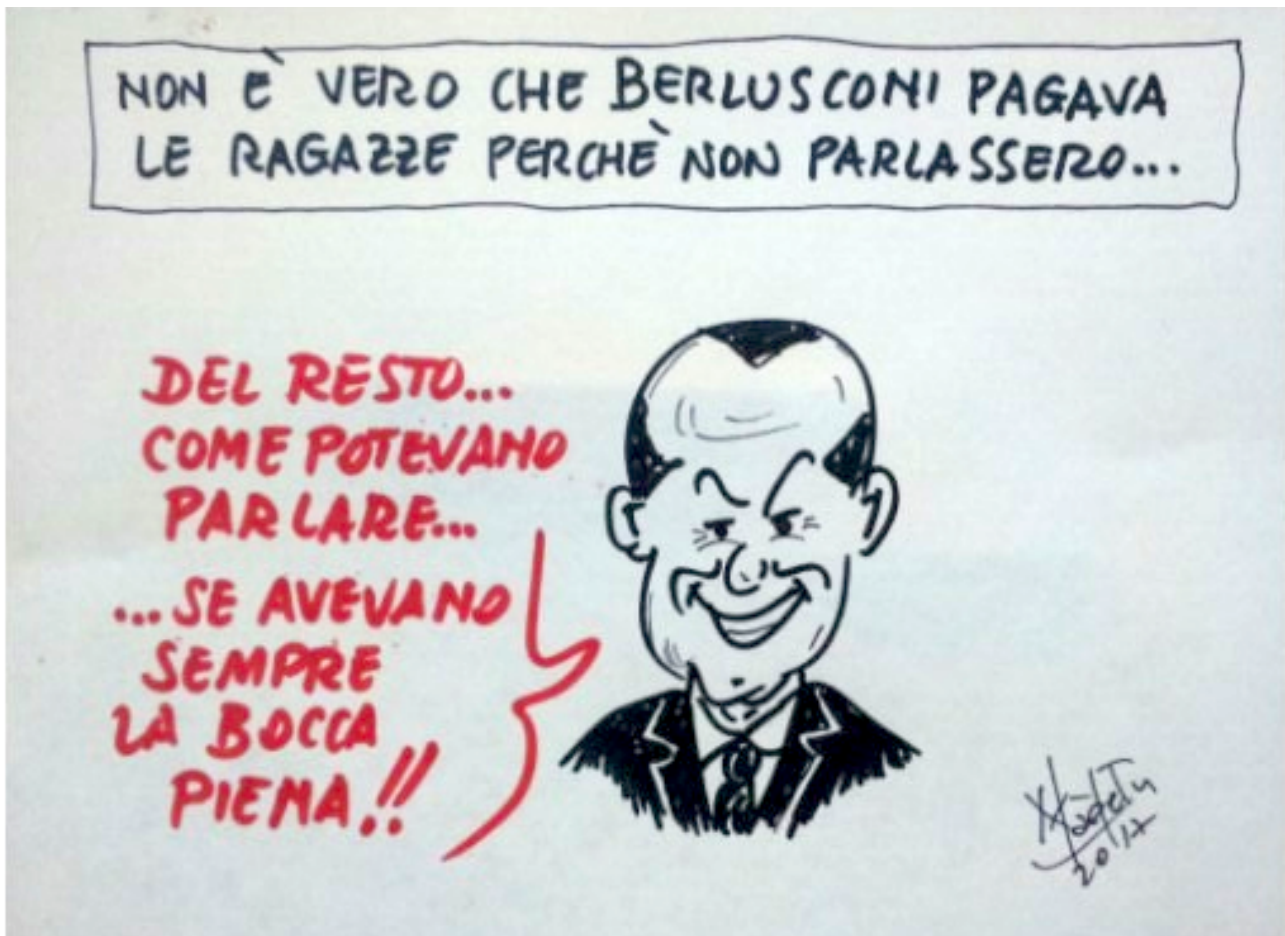 NON È VERO CHE BERLUSCONI PAGAVA
LE RAGAZZE PERCHÈ NON PARLASSERO...
DEL RESTO...
COME POTEVANO
PARLARE...
...SE AVEVANO
SEMPRE
LA BOCCA
PIENA!!
2017